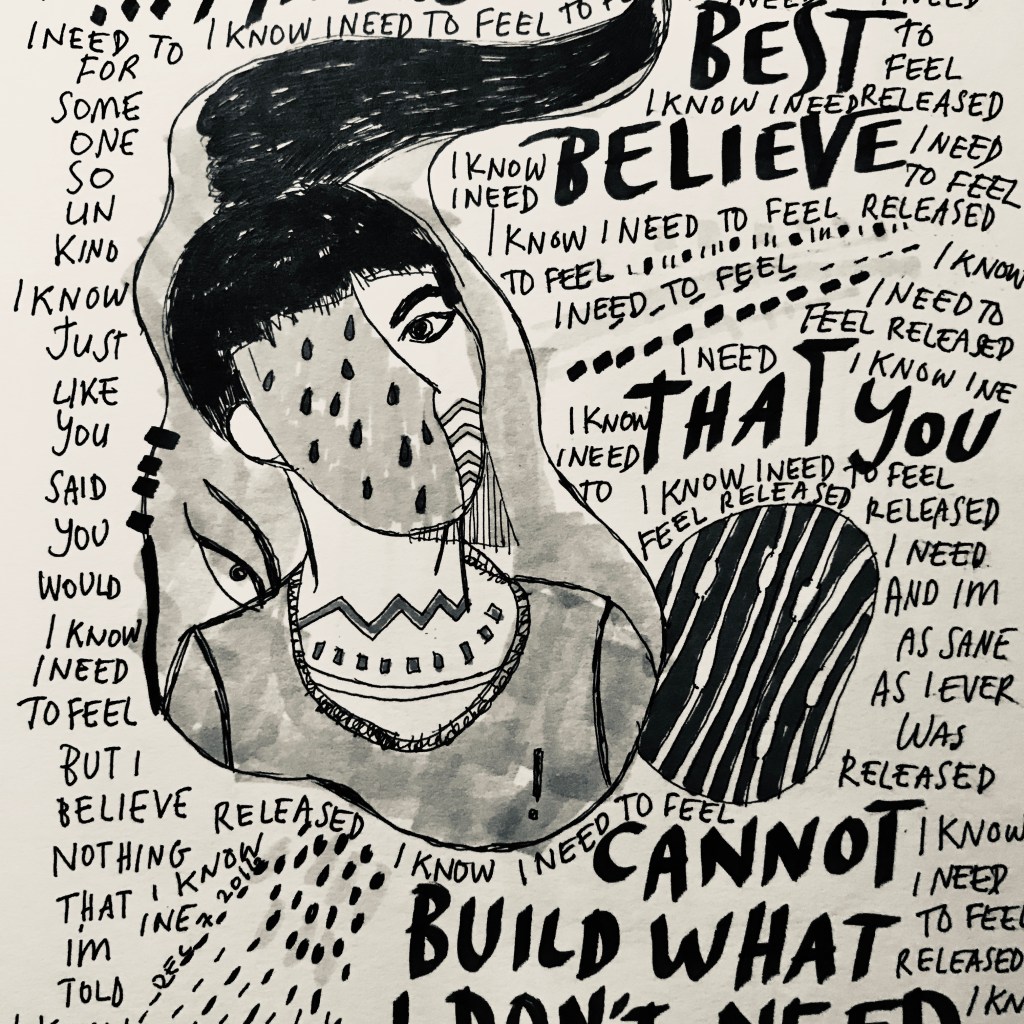 I NEED TO
FOR
SOME
ONE
SO
UN
KIND
I KNOW
JUST
LIKE
YOU
SAID
YOU
WOULD
I KNOW
I NEED
TO FEEL
BUT I
BELIEVE
NOTHING
THAT
I'M
TOLD
I KNOW I NEED TO FEEL TO
BEST
TO
FEEL
I KNOW I NEED RELEASED
BELIEVE
I KNOW
I NEED
I NEED
TO FEEL
I KNOW I NEED TO FEEL RELEASED
TO FEEL
I NEED TO FEEL
I KNOW
I NEED TO
FEEL RELEASED
I NEED
I KNOW I NE
THAT YOU
I KNOW
I NEED
TO
I KNOW I NEED TO FEEL
FEEL RELEASED
RELEASED
I NEED
AND IM
AS SANE
AS I EVER
WAS
RELEASED
RELEASED
I KNOW
I NE
2016
I KNOW I NEED TO FEEL
CANNOT
I KNOW
I NEED
TO FEEL
RELEASED
BUILD WHAT
I DON'T NEED
I KN